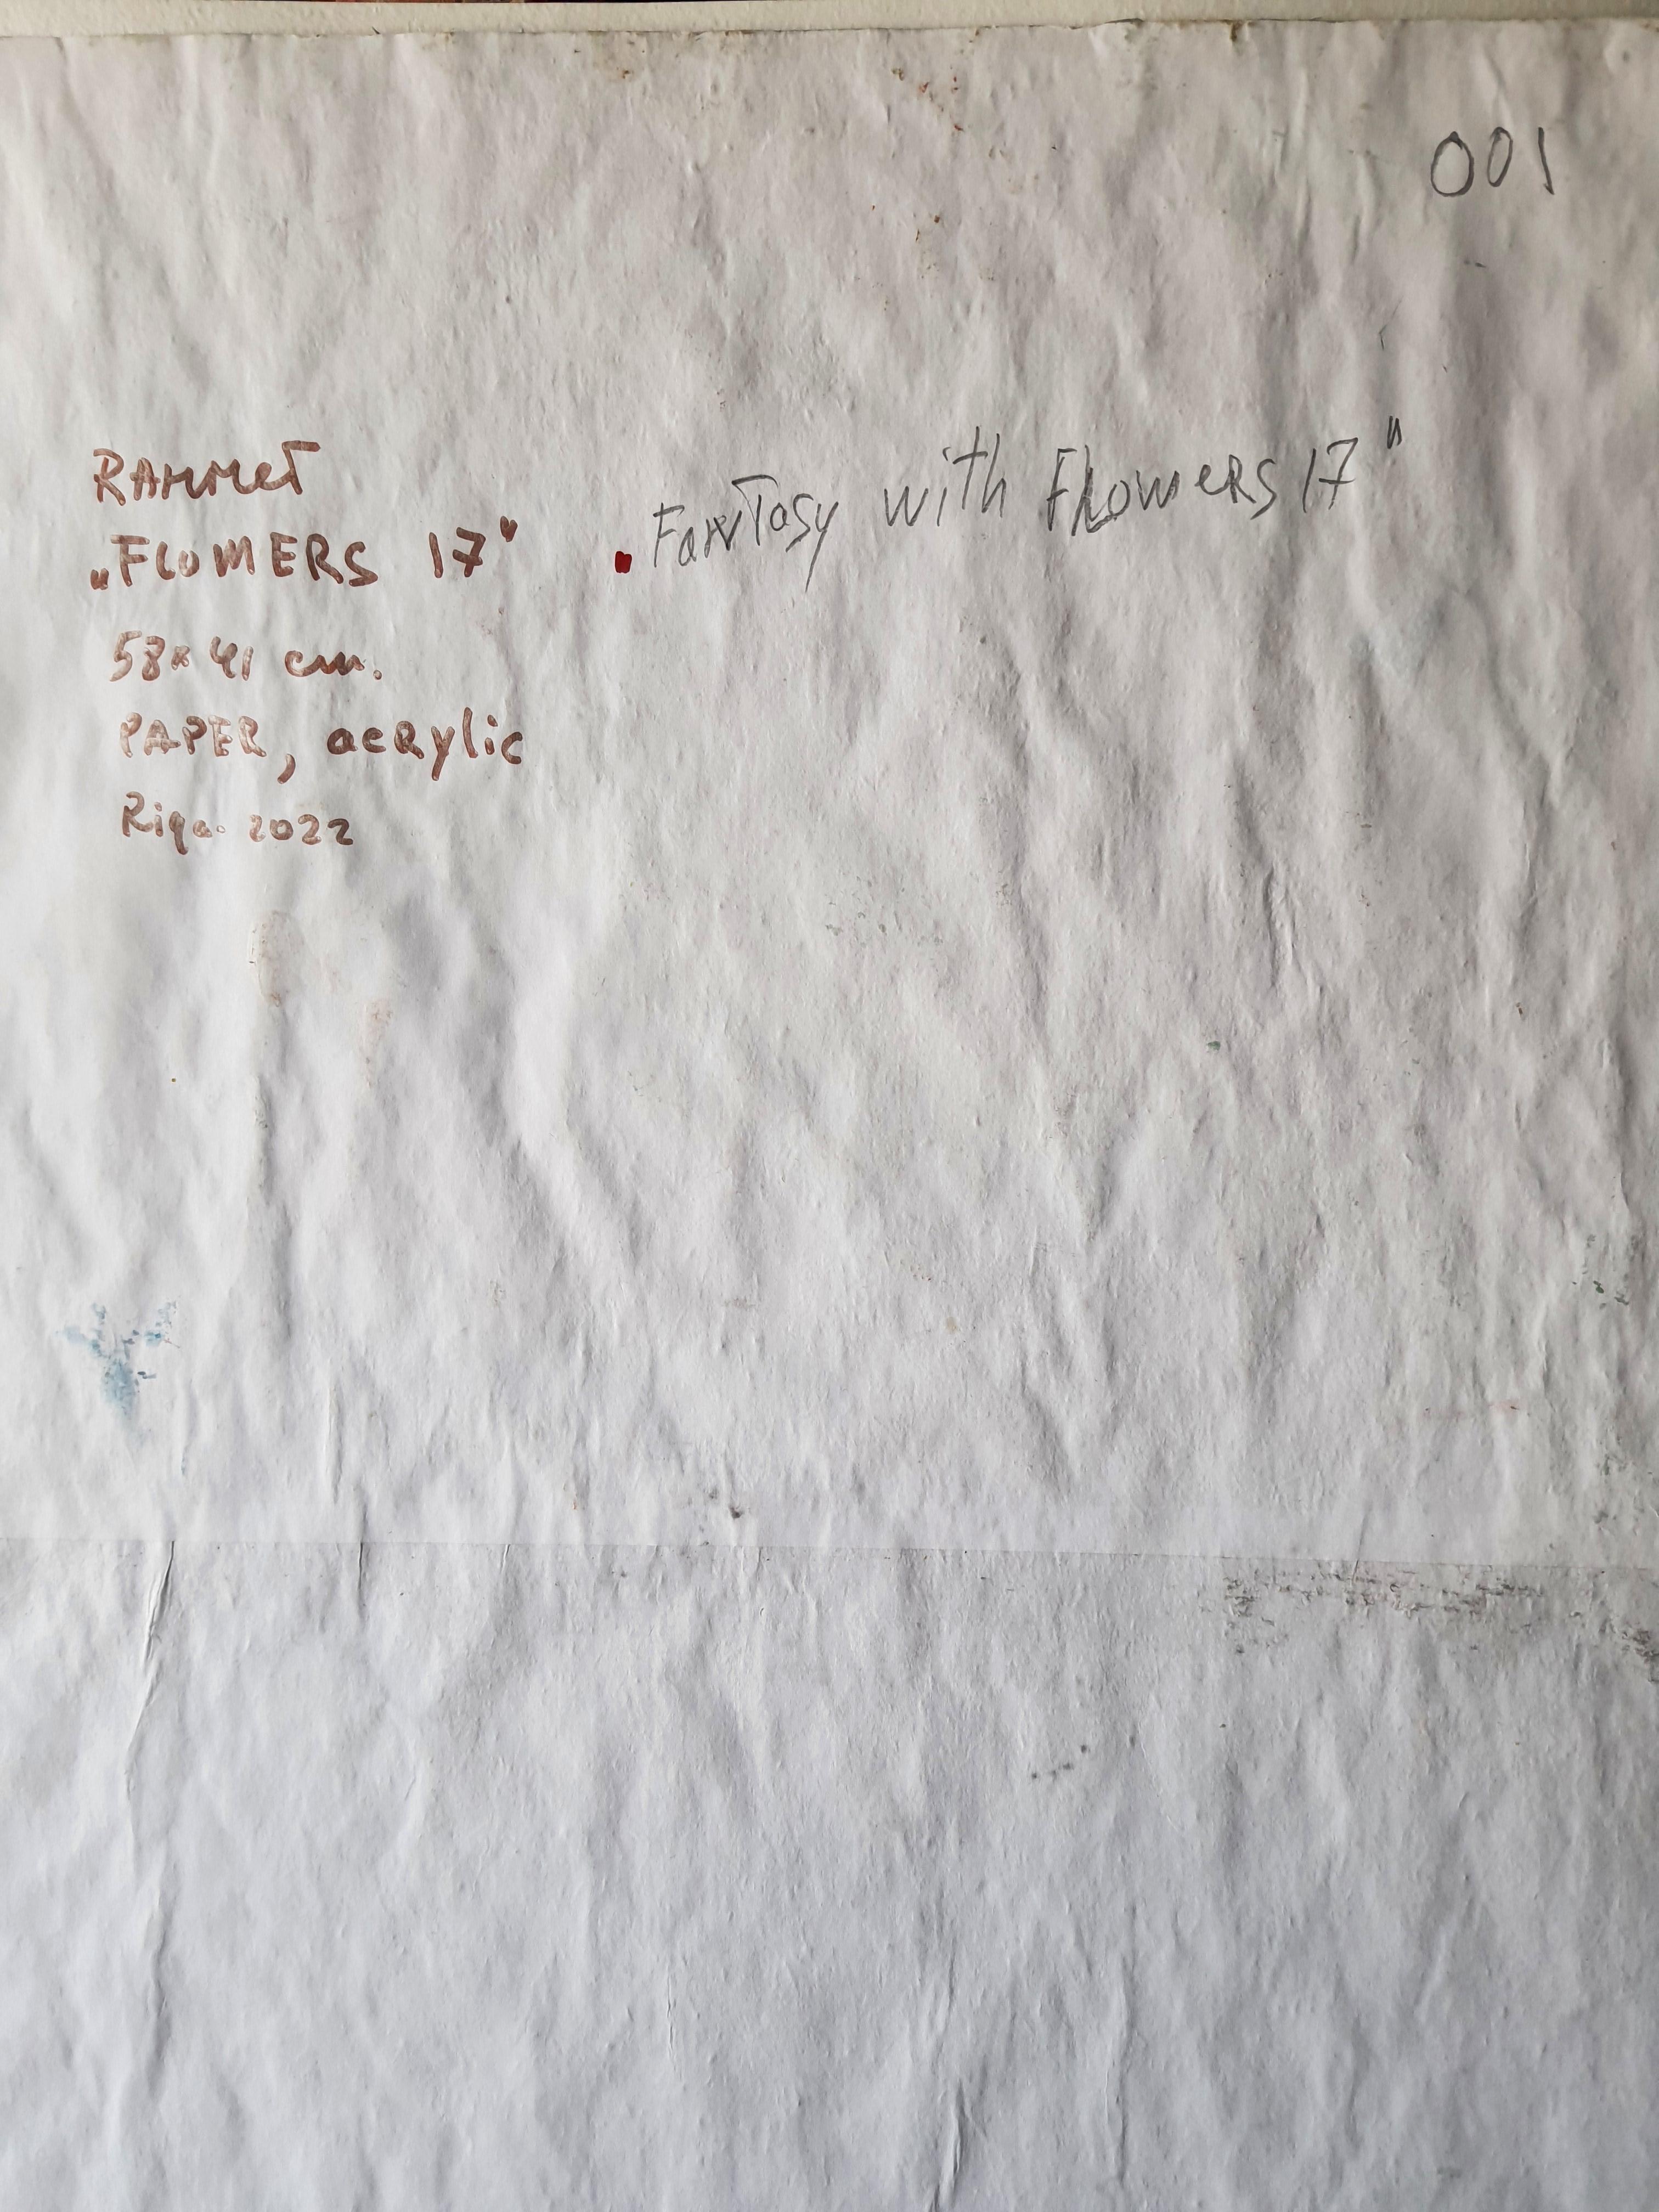 001
RAHMET
„FLOWERS 17"
Fantasy with Flowers 17"
58x41 cm.
PAPER, acrylic
Riga. 2022